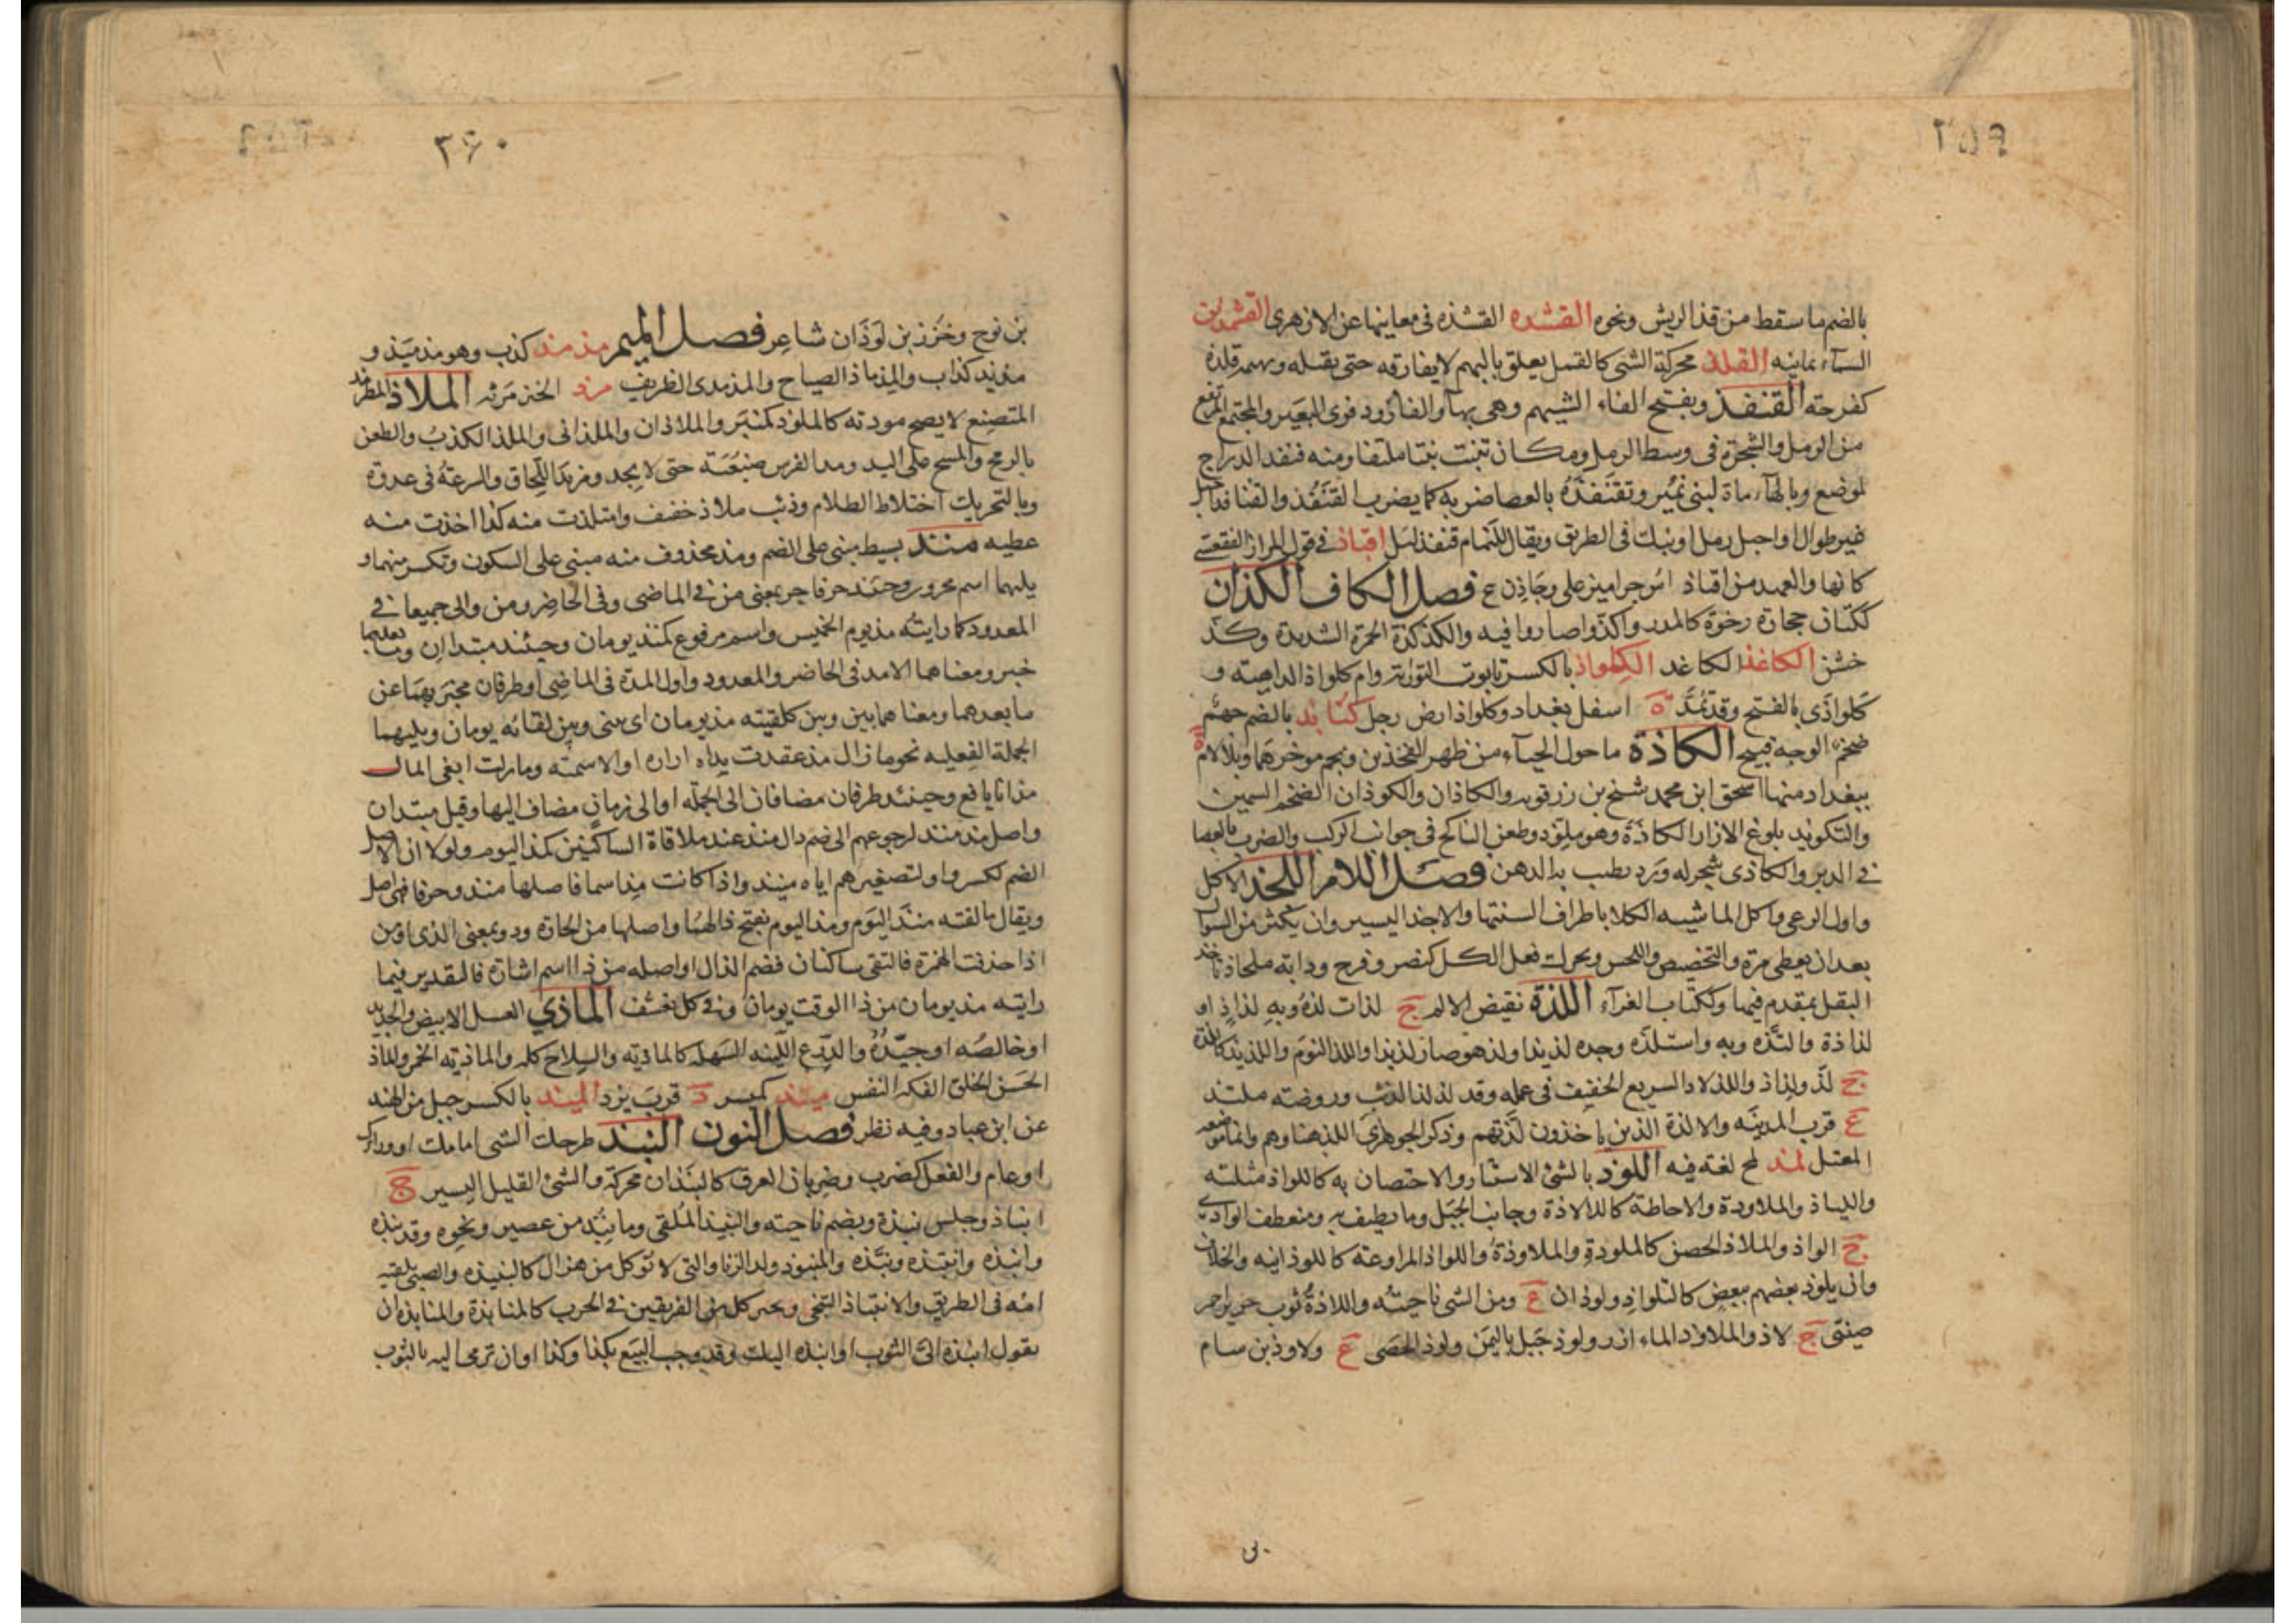 ٣٥٩
بالضم ما سقط من قذ الريش ونحوه القشذه القشذه فى معانيها عن الازهرى القشمذين
السمآء يمانيه القلذ محركة الشى كالقمل يعلق بالبهم لا يفارقه حتى يقتله وبهمه قلذة
كفرحته القنفذ وبفتح الفاء الشيهم وهى بهآ والفار وذفرى البعير والمجتمع المرتفع
من الرمل والشجرة فى وسط الرمل ومكان تنبت نبتا ملتفا ومنه قنفذ الدراج
لموضع وبالهآء ماة لبنى نمير وتقنفذه بالعصا ضربه كما يضرب القنفذ والقنافذ اجبل
غير طوال او احبل رمل او نبك فى الطريق ويقال للنمام قنفذ ليل اقناذ فى قول المرار الفقعسى
كانها والعهد من اقناذ اس جراميز على وجاذن ع فصل الكاف الكذان
ككتان حجارة رخوة كالمدر واكذوا صاروا فيه والكذكذة الحمرة الشديدة وكذ
خشن الكاغذ الكاغد الكلواذ بالكسر تابوت التوراة وام كلواذ الداهيته و
كلواذى بالفتح وقد تمد ه اسفل بغداد وكلواذ ارض رجل كنابذ بالضم جهم
ضخم الوجه قبيح الكاذة ما حول الحيآء من ظهر الفخذين ولحم موخرهما وبلالام ة
ببغداد منها اسحق ابن محمد شيخ بن زرقويه والكاذان والكوذان الضخم السمين
والتكويذ بلوغ الازار الكاذة وهو مكوذ وطعن الناكح فى جوانب الركب والضرب بالعصا
فى الدبر والكاذى شجر له ورد يطيب به الدهن فصل اللام اللجذ الاكل
واول الرعى واكل الماشيه الكلا باطراف السنتها والاخذ اليسير وان يكثر من السوال
بعد ان يعطى مرة والتخصيص واللحس ويحرك فعل الكل كنصر وفرح ودابة ملجاذ تاخذ
البقل بمقدم فيها وككتاب الغرآء اللذة نقيض الالم ج لذات لذه وبه لذاذ او
لذاذة والتذه وبه واستلذه وجده لذيذا ولذ هو صار لذيذا واللذ النوم واللذيذ كاللذة
ج لذ ولذاذ واللذلاذ السريع الخفيف فى عمله وقد لذلذ الذئب وروضته ملتذ
ع قرب المدينه والالذة الذين ياخذون لذتهم وذكر الجوهرى اللذ هنا وهم وانما موضعه
المعتل لمذ لمح لغته فيه اللوذ بالشئ الاستتار والاحتصان به كاللواذ مثلثه
واللياذ والملاوذة والاحاطة كالالاذة وجانب الجبل وما يطيف به ومنعطف الوادى
ج الواذ والملاذ الحصن كالملوذة والملاوذة واللواذ المراوغة كاللوذانيه والخلاف
وان يلوذ بعضهم ببعض كالتلواذ ولوذان ع ومن الشى ناحيته واللاذة ثوب حرير احمر
صينى ج لاذ والملاوذ المآء ازر ولوذ جبل باليمن ولوذ الحصى ع ولاوذ بن سام
٣٦٠
بن نوح وخزز بن لوذان شاعر فصل الميم مذمذ كذب وهو مذميذ و
مذيذ كذاب والمذماذ الصياح والمذمذى الظريف مرذ الخبز مرثه الملاذ المطرمذ
المتصنع لا يصح مودته كالملوذ كمنبر والملاذان والملذانى والملذ الكذب والطعن
بالرمح والمسح على اليد ومد الفرس ضبعيه حتى لا يجد ومزيدا للحاق والسرعة فى عدوه
وبالتحريك اختلاط الظلام وذئب ملاذ خفف وامتلذت منه كذا اخذت منه
عطيه منذ بسيط مبنى على الضم ومذ محذوف منه مبنى على السكون وتكسر ميمهما و
يليهما اسم مجرور وحينئذ حرفا جر بمعنى من فى الماضى وفى الحاضر ومن والى جميعا فى
المعدود كما رايته مذ يوم الخميس واسم مرفوع كمنذ يومان وحينئذ مبتدان وما بعدهما
خبر ومعناهما الامد فى الحاضر والمعدود واول المدة فى الماضى او ظرفان مخبر بهما عن
ما بعدهما ومعناهما بين وبين كلقيته مذ يومان اى بينى وبين لقائه يومان ويليهما
الجملة الفعليه نحو ما زال مذ عقدت يداه ازاره او الاسميته وما زلت ابغى المال
مذ انا يافع وحينئذ ظرفان مضافان الى الجملة او الى زمان مضاف اليها وقيل مبتدان
واصل مذ منذ لرجوعهم الى ضم ذال منذ عند ملاقاة الساكنين كمذ اليوم ولولا ان الاصل
الضم لكسروا ولتصغيرهم اياه منيذ واذا كانت مذ اسما فاصلها منذ وحرفا فهى اصل
ويقال ما لقته منذ اليوم ومذ اليوم بفتح ذالهما واصلها من الجارة وذو بمعنى الذى او من
اذ حذفت الهمزة فالتقى ساكنان فضم الذال او اصله من ذا اسم اشارة فالتقدير فيما
رايته مذ يومان من ذا الوقت يومان وفى كل تعسف الماذى العسل الابيض والجديد
او خالصه او جيده والدرع اللينه السهله كالماذيه والسلاح كله والماذيه الخمر والماذ
الحسن الخلق الفكه النفس ميبذ كميسر د قرب يزد الميذ بالكسر جبل من الهند
عن ابن عباد وفيه نظر فصل النون النبذ طرحك الشى امامك او وراءك
او عام والفعل كضرب وضربان العرق كالنبذان محركة والشئ القليل اليسير ج
انباذ وجلس نبذة وبضم ناحيته والنبيذ الملقى وما نبذ من عصير ونحوه وقد نبذه
وانبذه وانتبذه ونبذه والمنبوذ ولد الزنا والتى لا توكل من هزال كالنبيذه والصبى تلقيه
امه فى الطريق والانتباذ التنحى وتحيز كل من الفريقين فى الحرب كالمنابذة والمنابذه ان
يقول انبذ الى الثوب او انبذه اليك وقد وجب البيع بكذا وكذا او ان ترمى اليه بالثوب